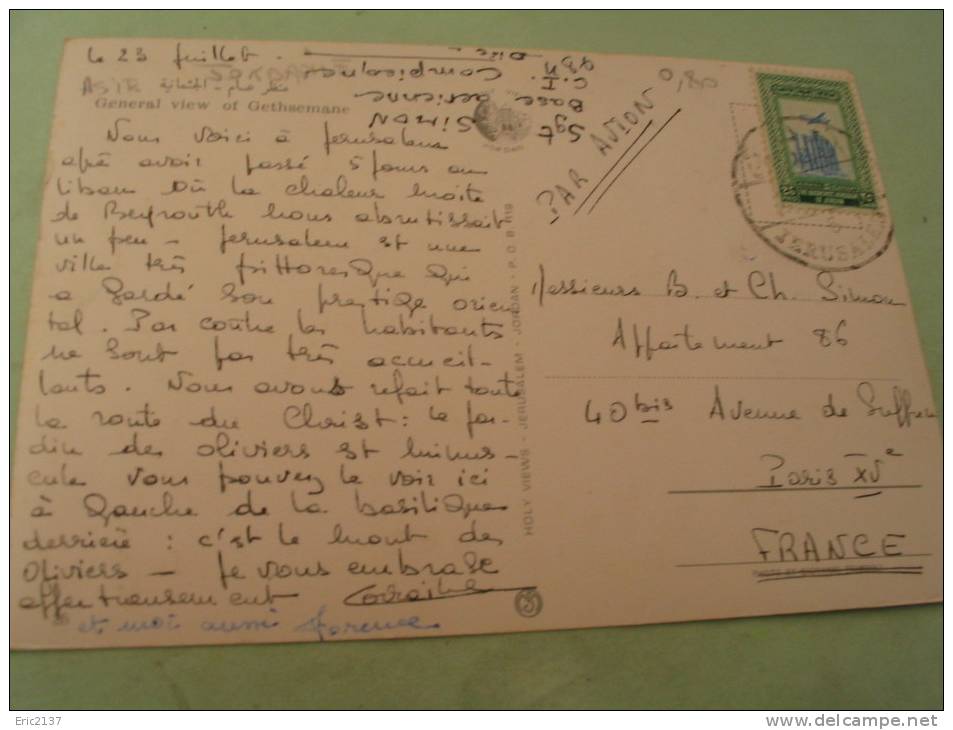 le 23 Juillet.
ASIR منظر عام
General view of Gethsemane
Nous voici à Jerusalem
après avoir passé 5 jours au
Liban où la chaleur moite
de Beyrouth nous abrutissait
un peu - Jerusalem est une
ville très pittoresque qui
a gardé son prestige orien
tal. Par contre les habitants
ne sont pas très accueil-
lants. Nous avons refait toute
la route du Christ : le jar-
din des oliviers est minus-
cule vous pouvez le voir ici
à gauche de la basilique
derrière : c'est le mont des
Oliviers - Je vous embrasse
affectueusement
et moi aussi Florence
Sgt SIMON
Base aérienne
C. I.
Compiègne
Oise
PAR AVION
0,80
JERUSALEM
HOLY VIEWS - JERUSALEM - JORDAN - P.O.B. 919
Messieurs B. et Ch. Simon
Appartement 86
40 bis Avenue de Suffren
Paris XVe
FRANCE
Eric2137
www.delcampe.net